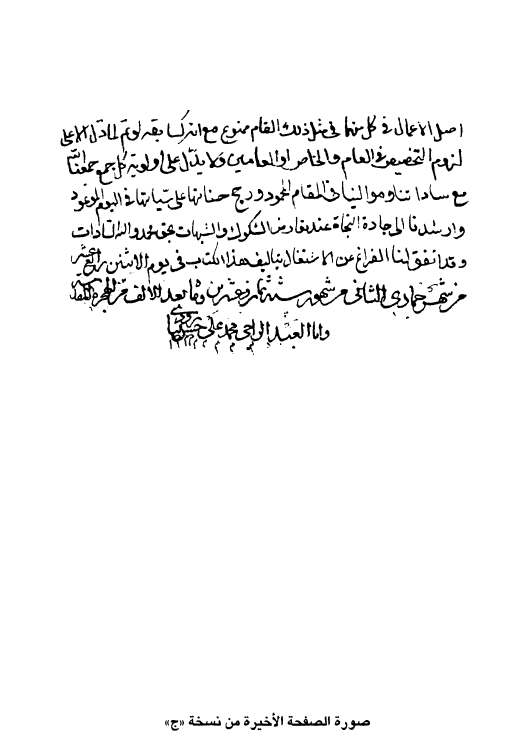 اصل الاعمال فى كل منها فى مثل ذلك المقام ممنوع مع انه كسابقه لو تم لما دل الا على
لزوم التخصيص فى العام والخاص او العامين فلا يدل على اولوية كل جمع جمعنا الله
مع ساداتنا وموالينا فى المقام المحمود ورجح حسناتنا على سيئاتنا فى اليوم الموعود
وارشدنا الى جادة النجاة عند تعارض الشكوك والشبهات بحق محمد واله السادات
وقد اتفق لنا الفراغ عن الاشتغال بتاليف هذا الكتاب فى يوم الاثنين رابع عشر
من شهر جمادى الثانى من شهور سنة ثمان وعشرين ومأ بعد الالف من الهجرة
وانا العبد الراجى محمد على
صورة الصفحة الأخيرة من نسخة «ج»